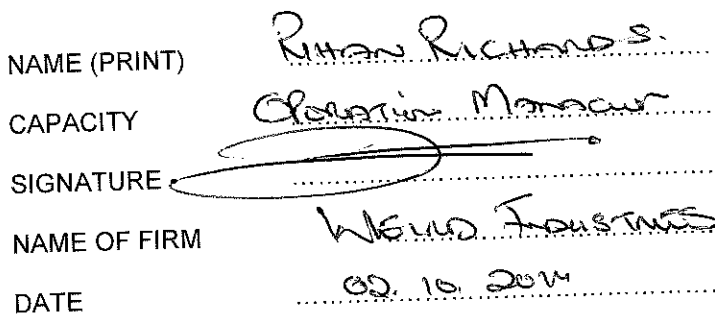 NAME (PRINT) RIHAN RICHARDS.
CAPACITY OPERATION MANAGER
SIGNATURE
NAME OF FIRM INDUSTRIES
DATE 02. 10. 2014